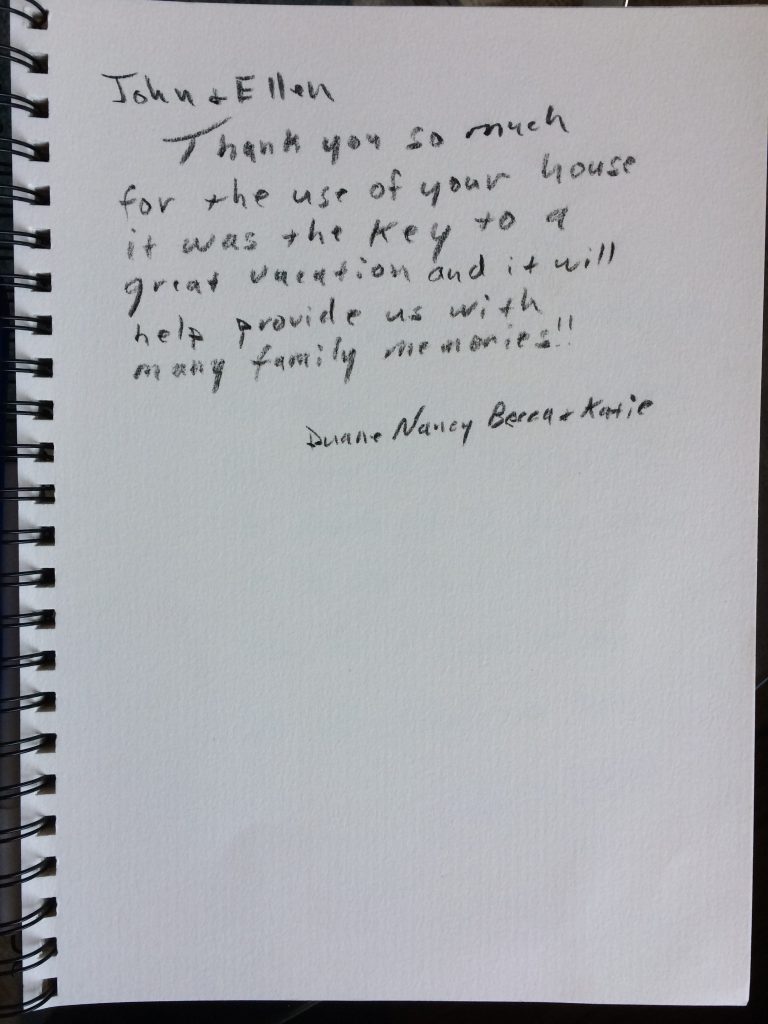 John + Ellen
Thank you so much
for the use of your house
it was the key to a
great vacation and it will
help provide us with
many family memories!!
Duane Nancy Becca + Katie